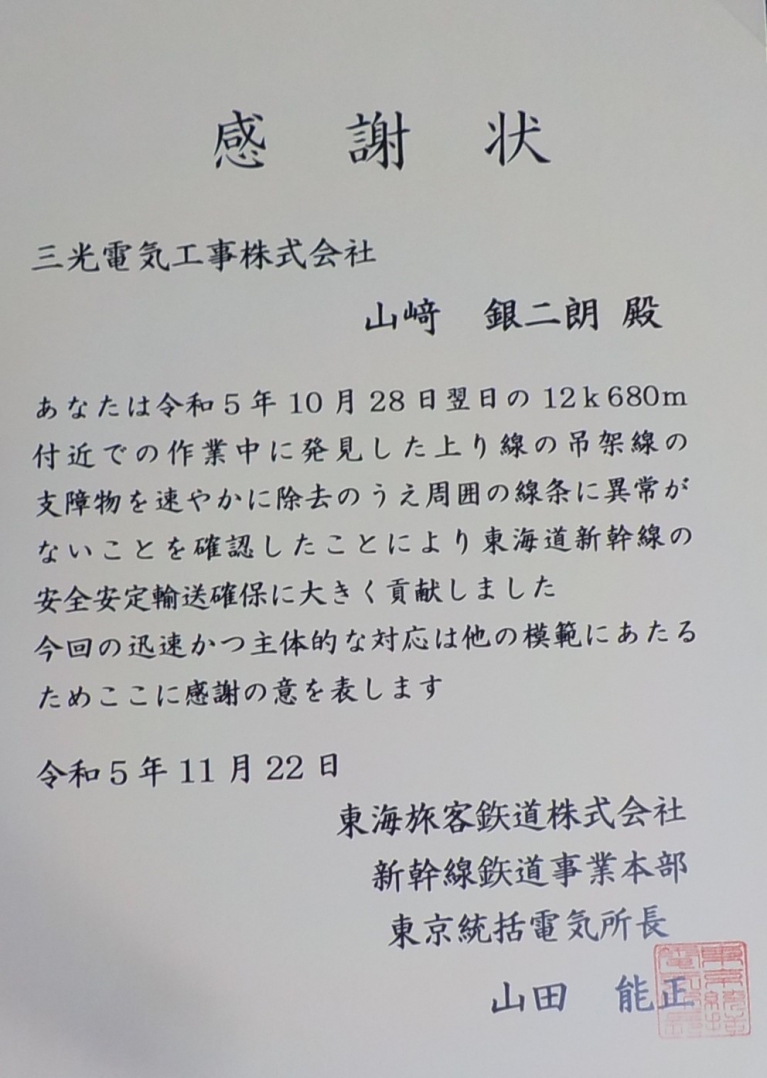 感謝状
三光電気工事株式会社
山﨑 銀二朗 殿
あなたは令和5年10月28日翌日の12k680m
付近での作業中に発見した上り線の吊架線の
支障物を速やかに除去のうえ周囲の線条に異常が
ないことを確認したことにより東海道新幹線の
安全安定輸送確保に大きく貢献しました
今回の迅速かつ主体的な対応は他の模範にあたる
ためここに感謝の意を表します
令和5年11月22日
東海旅客鉃道株式会社
新幹線鉃道事業本部
東京統括電気所長
山田 能正